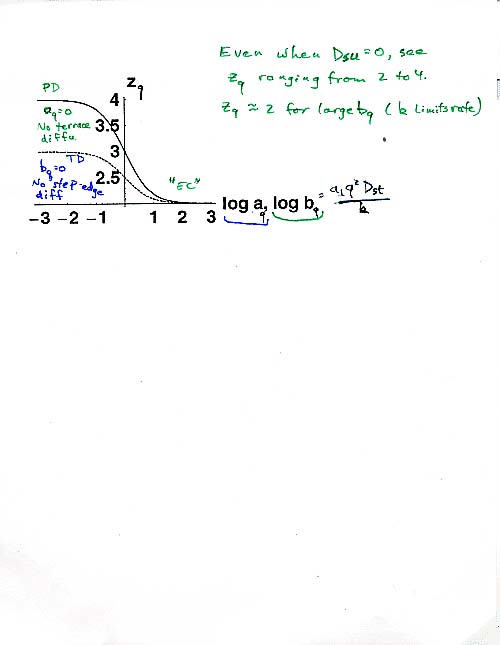 Even when Dsu = 0, see
Zq ranging from 2 to 4.
Zq ≈ 2 for large bq (k limits rate)
PD
aq = 0
No terrace
diffu.
TD
bq = 0
No step-edge
diff
zq
4
3.5
3
2.5
"EC"
-3 -2 -1 1 2 3 log aq, log bq = a⊥q² Dst / k